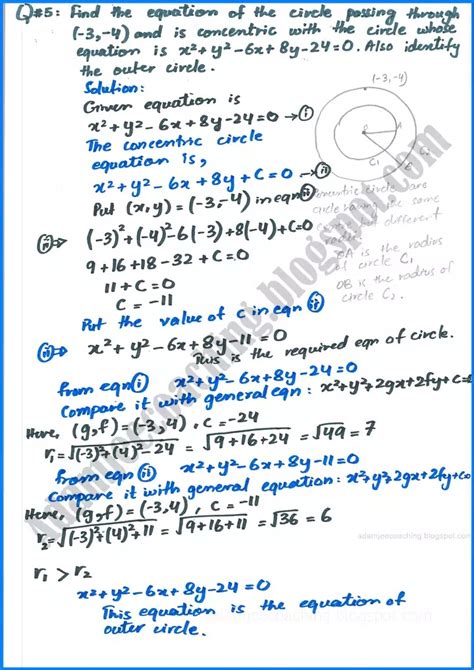 Q#5: Find the equation of the circle passing through
(-3,-4) and is concentric with the circle whose
equation is x²+y²-6x+8y-24=0. Also identify
the outer circle.
Solution:
Given equation is
x²+y²-6x+8y-24=0 → (i)
The concentric circle
equation is,
x²+y²-6x+8y+C=0 → (ii)
Put (x,y)=(-3,-4) in eqn (ii)
(ii) ⇒ (-3)²+(-4)²-6(-3)+8(-4)+C=0
9+16+18-32+C=0
11+C=0
C=-11
Put the value of c in eqn (ii)
(ii) ⇒ x²+y²-6x+8y-11=0
This is the required eqn of circle.
(-3,-4)
A
C₁
Concentric circle are
circle having the same
different
OA is the radius
of circle C₁
OB is the radius of
circle C₂.
from eqn (i) x²+y²-6x+8y-24=0
Compare it with general eqn: x²+y²+2gx+2fy+c=0
Here, (g,f)=(-3,4), c=-24
r₁=√(-3)²+(4)²-24 = √9+16+24 = √49 = 7
from eqn (ii) x²+y²-6x+8y-11=0
Compare it with general equation: x²+y²+2gx+2fy+c=0
Here, (g,f)=(-3,4), c=-11
r₂=√(-3)²+(4)²+11 = √9+16+11 = √36 = 6
r₁ > r₂
x²+y²-6x+8y-24=0
This equation is the equation of
outer circle.
Adamjeecoaching.blogspot.com
adamjeecoaching.blogspot.com
adamjeecoaching.blogspot.com